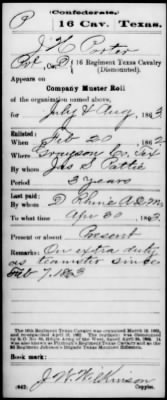 (Confederate.)
P 16 Cav. Texas.
J. H. Porter
Pvt, Co. D, 16 Regiment Texas Cavalry
(Dismounted).
Appears on
Company Muster Roll
of the organization named above,
for July & Aug, 1863
Enlisted:
When Feb 20, 1862
Where Grayson Co. Tex
By whom Jas S. Pattie
Period 3 years
Last paid:
By whom D. Rhine A.Q.M.
To what time Apr 30, 1863
Present or absent Present
Remarks: On extra duty
as teamster since
Feb 7, 1863
Book mark:
J. W. Wilkinson
(642) Copyist.